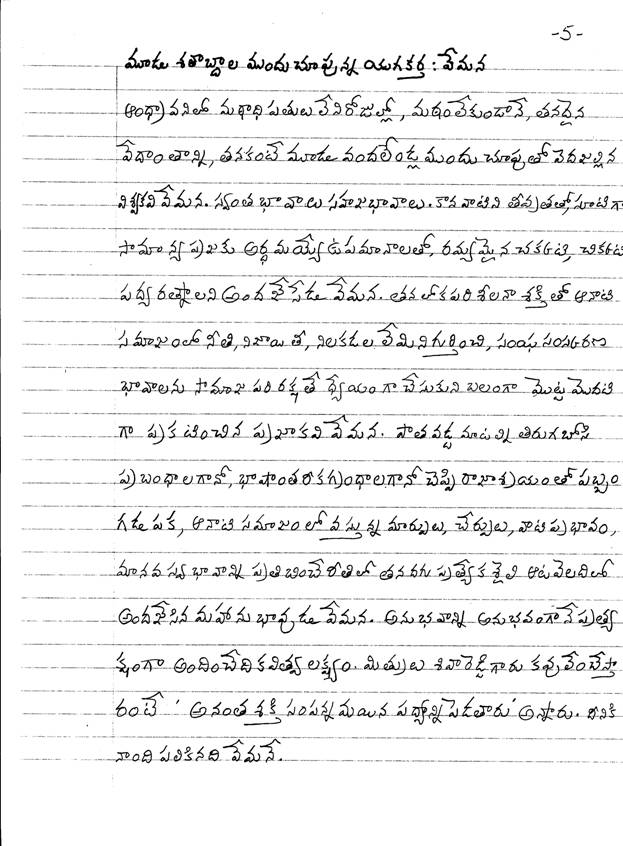 -5-
మూడు శతాబ్దాల ముందుచూపున్న యుగకర్త : వేమన
ఆంధ్రావనిలో మఠాధిపతులు లేని రోజుల్లో, మఠం లేకుండానే, తనదైన
వేదాంతాన్ని, తనకంటే మూడు వందలేండ్ల ముందు చూపుతో వెదజల్లిన
విశ్వకవి వేమన. స్వంత భావాలు సహజభావాలు. కాన వాటిని తీవ్రతతో, సూటిగా
సామాన్య ప్రజకు అర్థమయ్యే ఉపమానాలతో, రమ్యమైన చకచక, చికచక
పద్య రత్నాలని అందజేసేడు వేమన. తన లోకపరిశీలనా శక్తితో ఆనాటి
సమాజంలో నీతి, నిజాయితీ, నిలకడల లేమిని గుర్తించి, సంఘ సంస్కరణ
భావాలను సామాజ పరిరక్షతే ధ్యేయంగా చేసుకుని బలంగా మొట్టమొదటి
గా ప్రకటించిన ప్రజాకవి వేమన. పాతవడ్డ మాటల్ని తిరుగబోసి
ప్రబంధాలగానో, భాషాంతరీకగ్రంథాలగానో చెప్పి రాజాశ్రయంతో పబ్బం
గడుపక, ఆనాటి సమాజంలో వస్తున్న మార్పులు, చేర్పులు, వాటి ప్రభావం,
మానవ స్వభావాన్ని ప్రతిబించే రీతిలో తనదగు ప్రత్యేక శైలి ఆటవెలదిలో
అందజేసిన మహానుభావుడు వేమన. అనుభవాన్ని అనుభవంగానే ప్రత్య
క్షంగా అందించేది కవిత్వ లక్ష్యం. మిత్రులు శివారెడ్డిగారు కవులేంచేస్తా
రంటే 'అనంత శక్తి సంపన్నమయిన పద్యాన్ని పెడతారు' అన్నారు. దీనికి
నాంది పలికినది వేమనే.